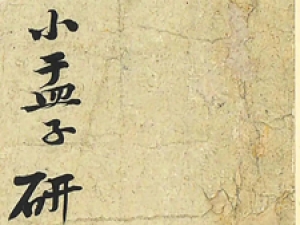 小孟子研